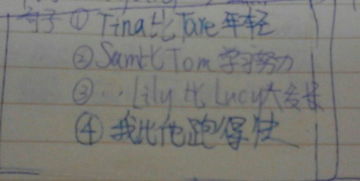 句子 ① Tina比Tare年轻
② Sam比Tom学习努力
③ ... Lily比Lucy头发长
④ 我比他跑得快